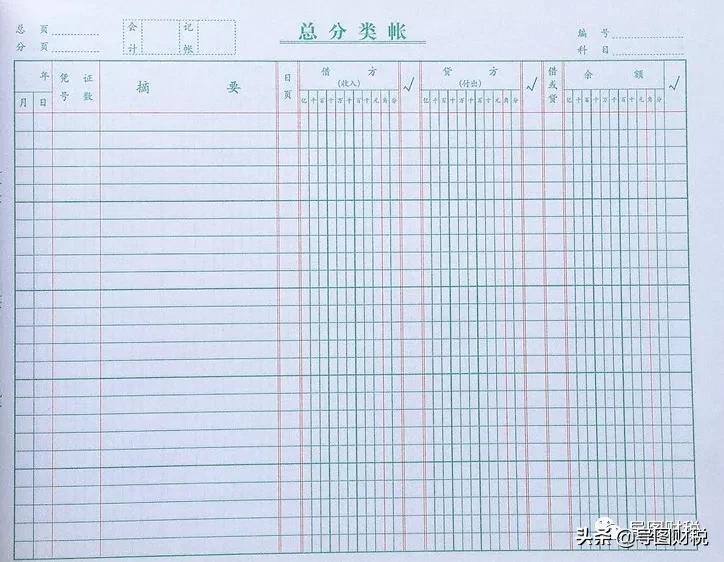 总分类帐
总 页
分 页
会计
记帐
编 号
科 目
年
月 日
凭证号数
摘 要
日页
借 方
(收入)
亿千百十万千百十元角分
√
贷 方
(付出)
亿千百十万千百十元角分
√
借或贷
余 额
亿千百十万千百十元角分
√
导图财税
头条 @导图财税